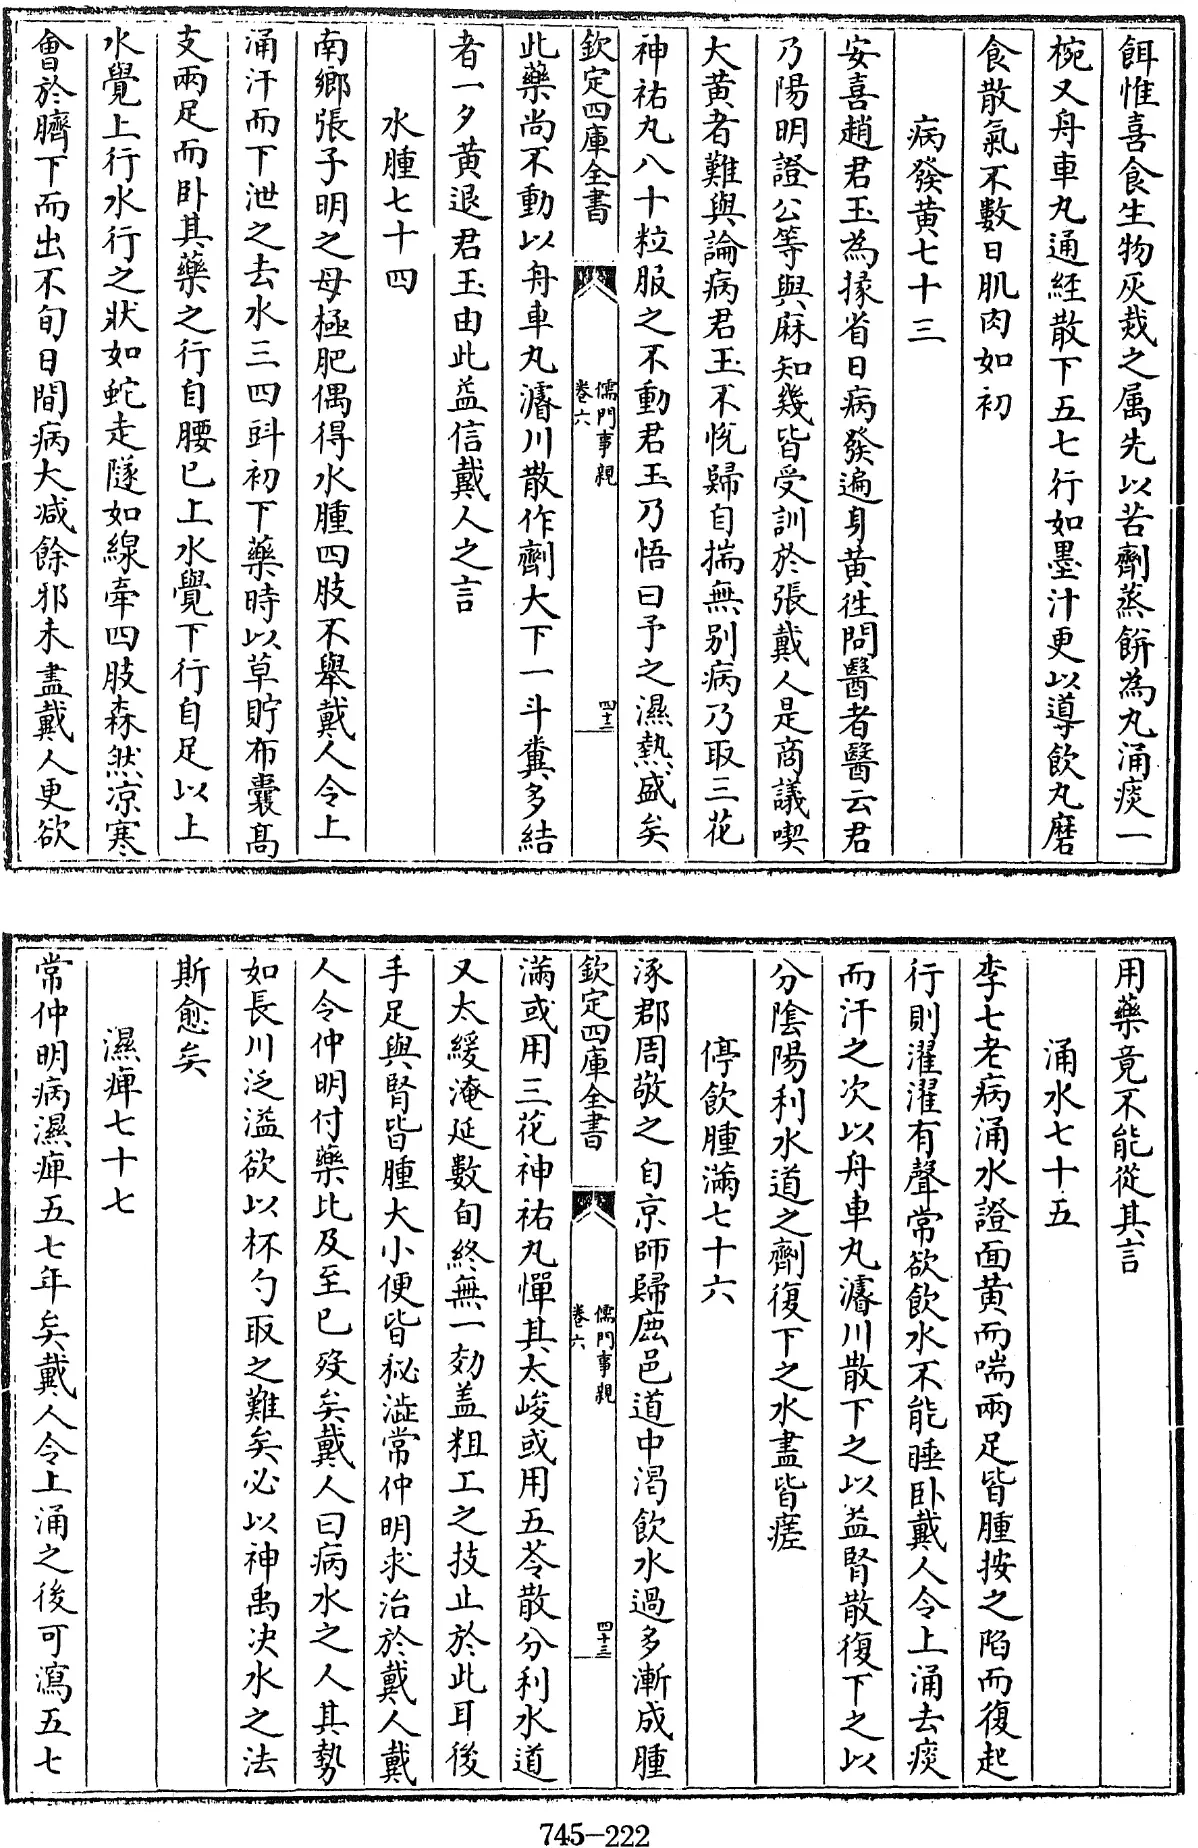 餌惟喜食生物灰烖之属先以苦劑蒸餅為丸涌痰一
椀又舟車丸通經散下五七行如墨汁更以導飲丸磨
食散氣不數日肌肉如初
病發黄七十三
安喜趙君玉為掾省日病發遍身黄徃問醫者醫云君
乃陽明證公等與麻知幾皆受訓於張戴人是商議喫
大黄者難與論病君玉不悅歸自揣無别病乃取三花
神祐丸八十粒服之不動君玉乃悟曰予之濕熱盛矣
欽定四庫全書
儒門事親
卷六
四十三
此藥尚不動以舟車丸濬川散作劑大下一斗糞多結
者一夕黄退君玉由此益信戴人之言
水腫七十四
南鄉張子明之母極肥偶得水腫四肢不舉戴人令上
涌汗而下泄之去水三四㪷初下藥時以草貯布囊髙
支兩足而卧其藥之行自腰已上水覺下行自足以上
水覺上行水行之狀如蛇走隧如線牽四肢森然凉寒
會於臍下而出不旬日間病大减餘邪未盡戴人更欲
用藥竟不能從其言
涌水七十五
李七老病涌水證面黄而喘兩足皆腫按之陷而復起
行則濯濯有聲常欲飲水不能睡卧戴人令上涌去痰
而汗之次以舟車丸濬川散下之以益腎散復下之以
分陰陽利水道之劑復下之水盡皆瘥
停飲腫滿七十六
涿郡周敬之自京師歸鹿邑道中渴飲水過多漸成腫
欽定四庫全書
儒門事親
卷六
四十三
滿或用三花神祐丸憚其太峻或用五苓散分利水道
又太緩淹延數旬終無一効盖粗工之技止於此耳後
手足與腎皆腫大小便皆秘澁常仲明求治於戴人戴
人令仲明付藥比及至已殁矣戴人曰病水之人其勢
如長川泛溢欲以杯勺取之難矣必以神禹决水之法
斯愈矣
濕痺七十七
常仲明病濕痺五七年矣戴人令上涌之後可瀉五七
745-222